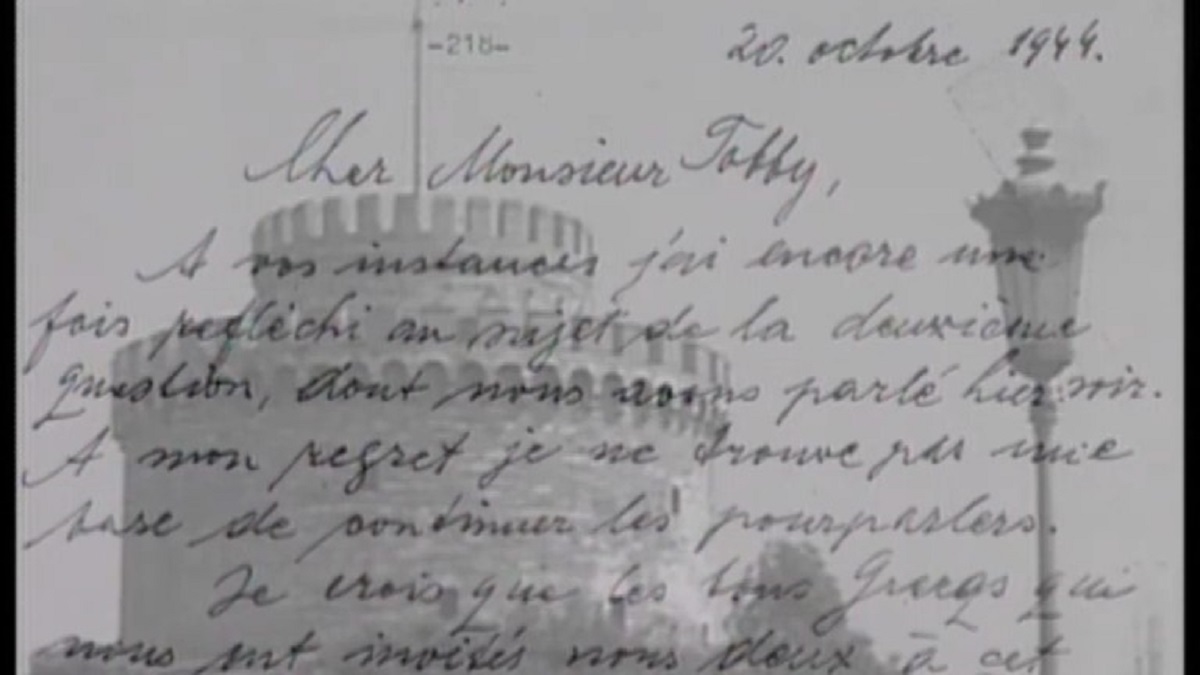 -218-
20. octobre 1944.
Cher Monsieur Tobby,
A vos instances j'ai encore une
fois reflèchi au sujet de la deuxième
question, dont nous avons parlé hier soir.
A mon regret je ne trouve pas une
base de continuer les pourparlers.
Je crois que les bons Grecqs qui
nous ont invités nous deux à cet